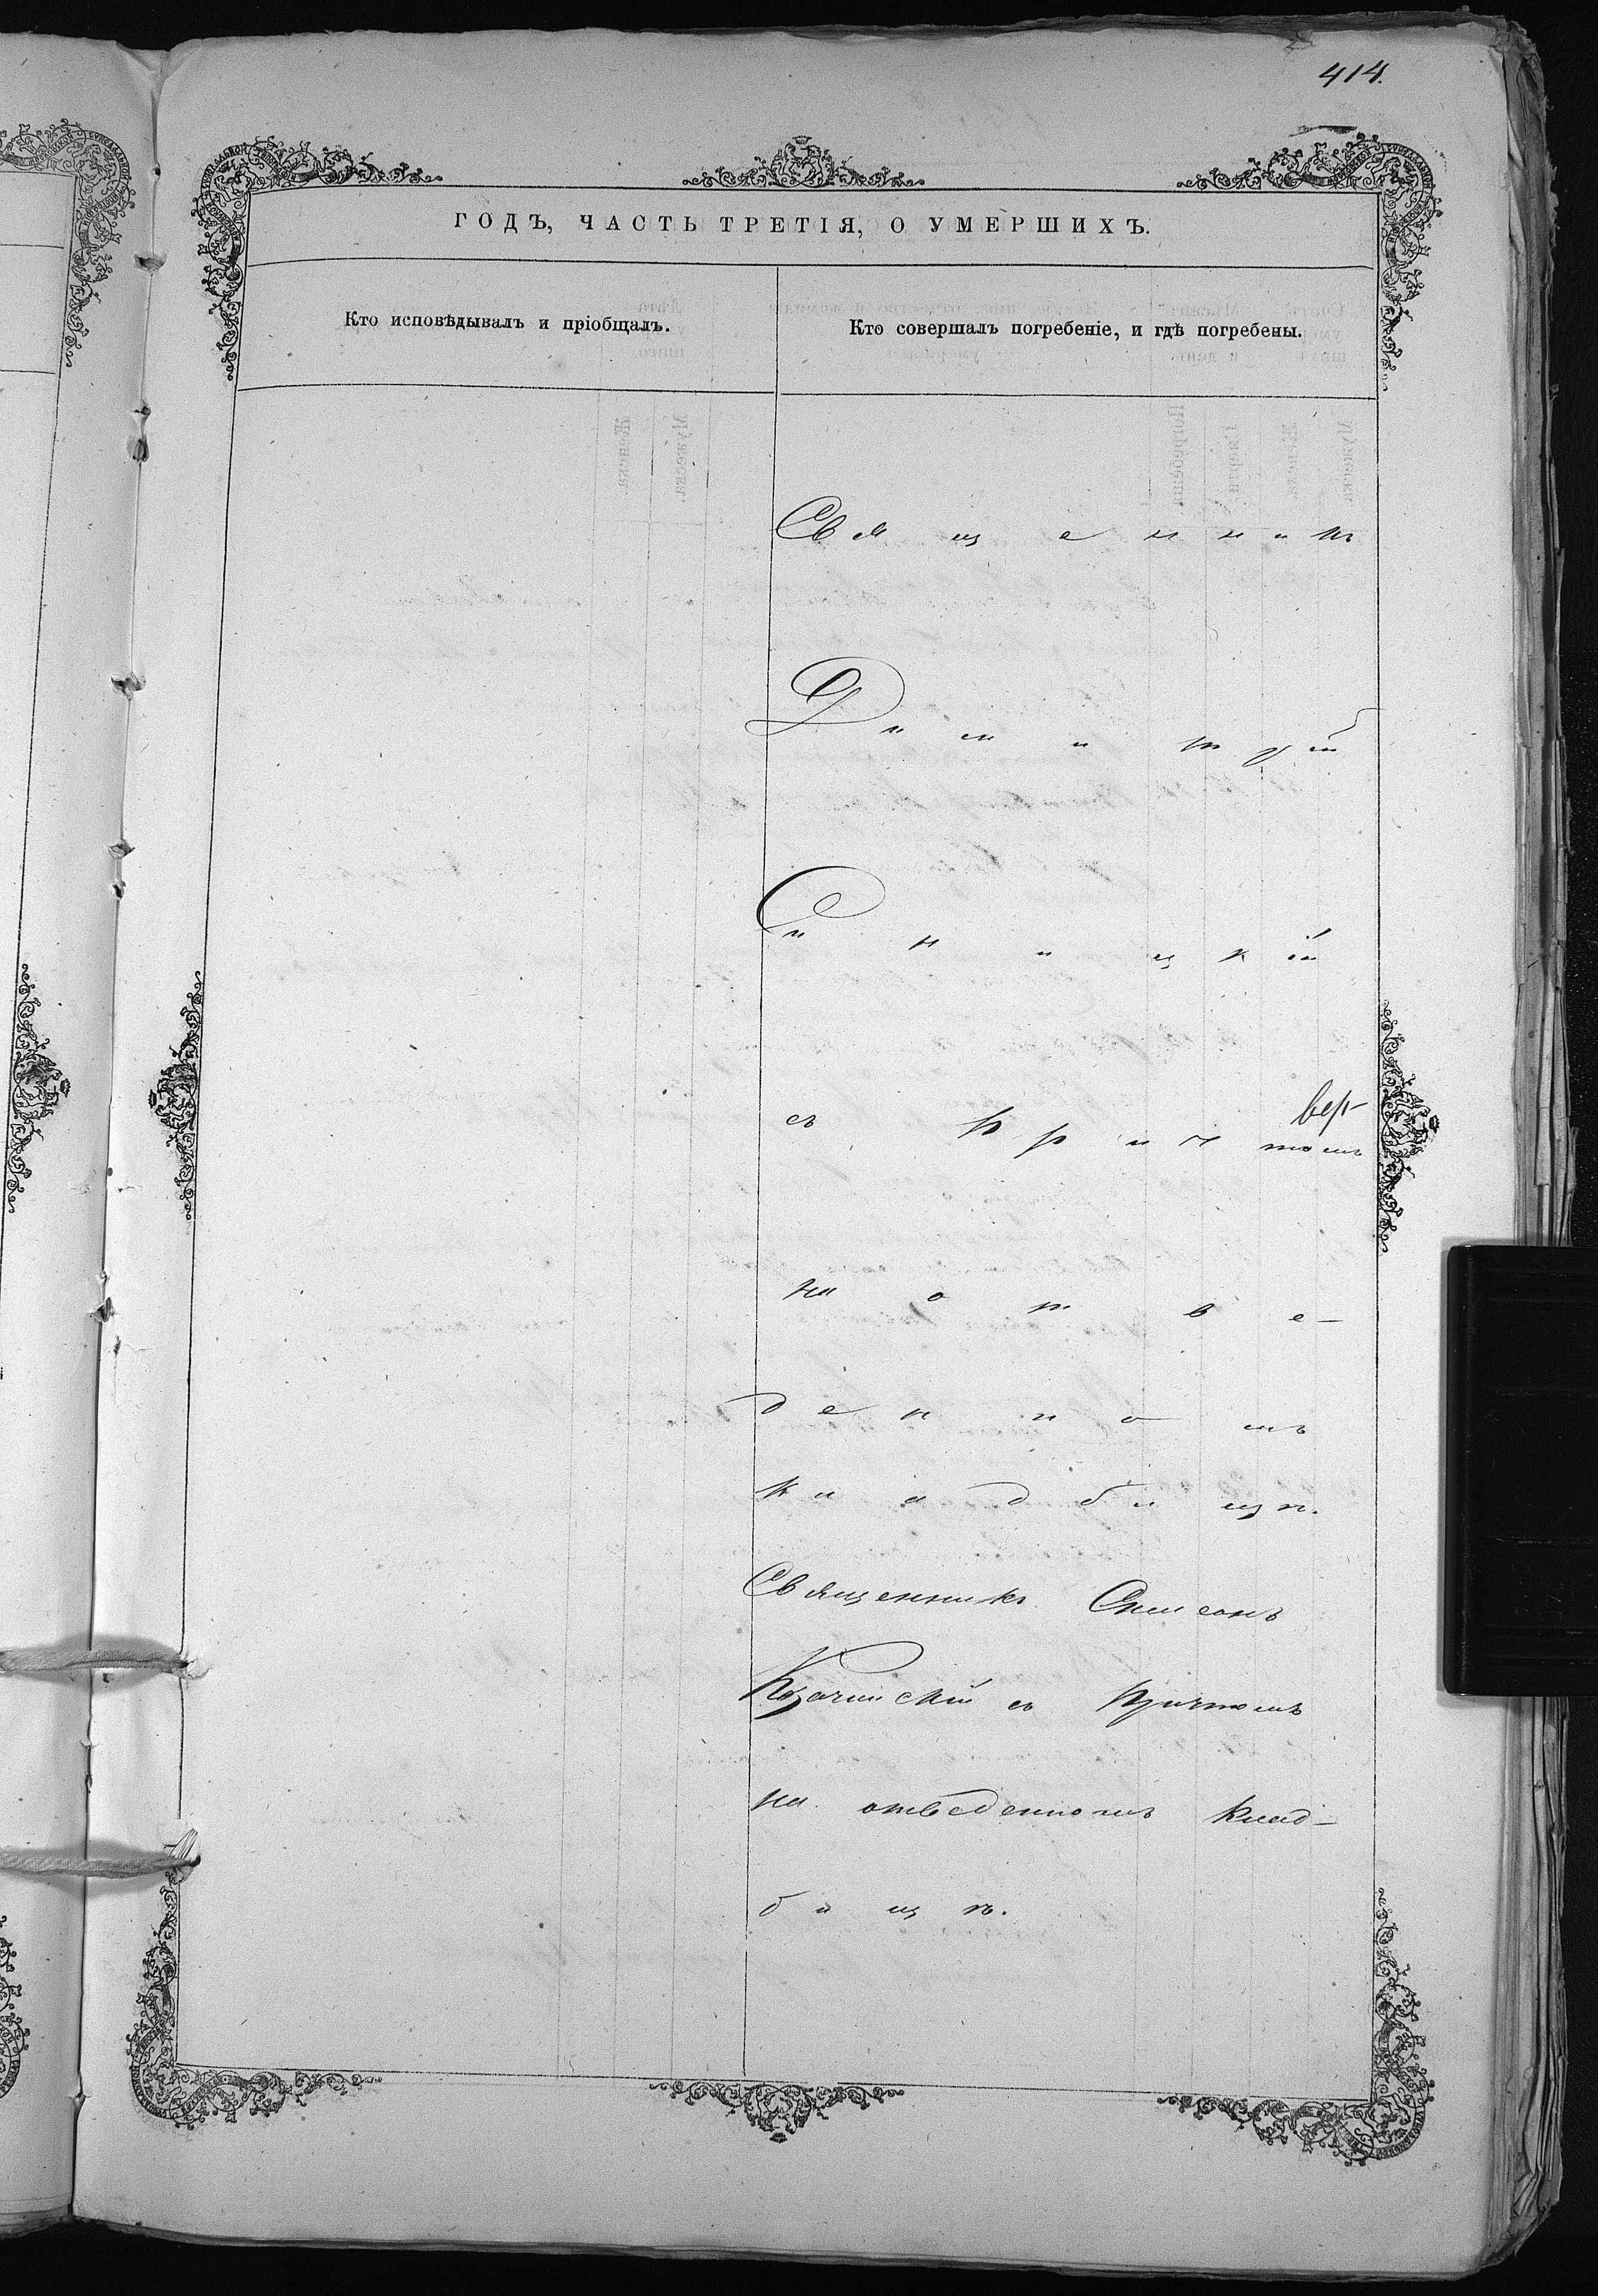 414.
ГОДЪ, ЧАСТЬ ТРЕТІЯ, О УМЕРШИХЪ.
Кто исповѣдывалъ и пріобщалъ.
Кто совершалъ погребеніе, и гдѣ погребены.
Священникъ
Димитрій
Синицкій
вер-
съ причтомъ
на отве-
денномъ
кладбищѣ.
Священникъ Симеонъ
съ причтомъ
на отведенномъ клад-
бищѣ.